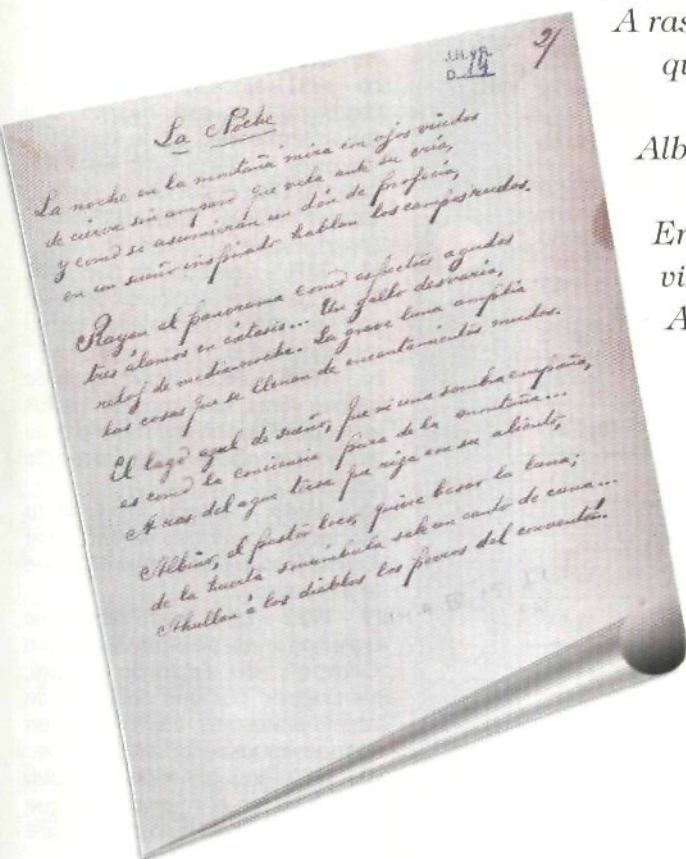 J.H. y R.
D. 14
2/
La Noche
La noche en la montaña mira con ojos viudos
de cierva sin amparo que vela ante su cría,
y como si asumieran un dón de profecía,
en un sueño inspirado hablan los campos rudos.
Rayan el panorama como espectros agudos
tres álamos en éxtasis... Un gallo desvaría,
reloj de media noche. La grave luna amplía
las cosas que se llenan de encantamientos mudos.
El lago azul de sueño, que ni una sombra empaña,
es como la conciencia pura de la montaña...
A ras del agua tersa que riza con su aliento,
Albino, el pastor loco, quiere besar la luna;
de la huerta sonámbula sale un canto de cuna...
Ahullan á los diablos los perros del convento.
A ras
qu
Alb
En
vi
A